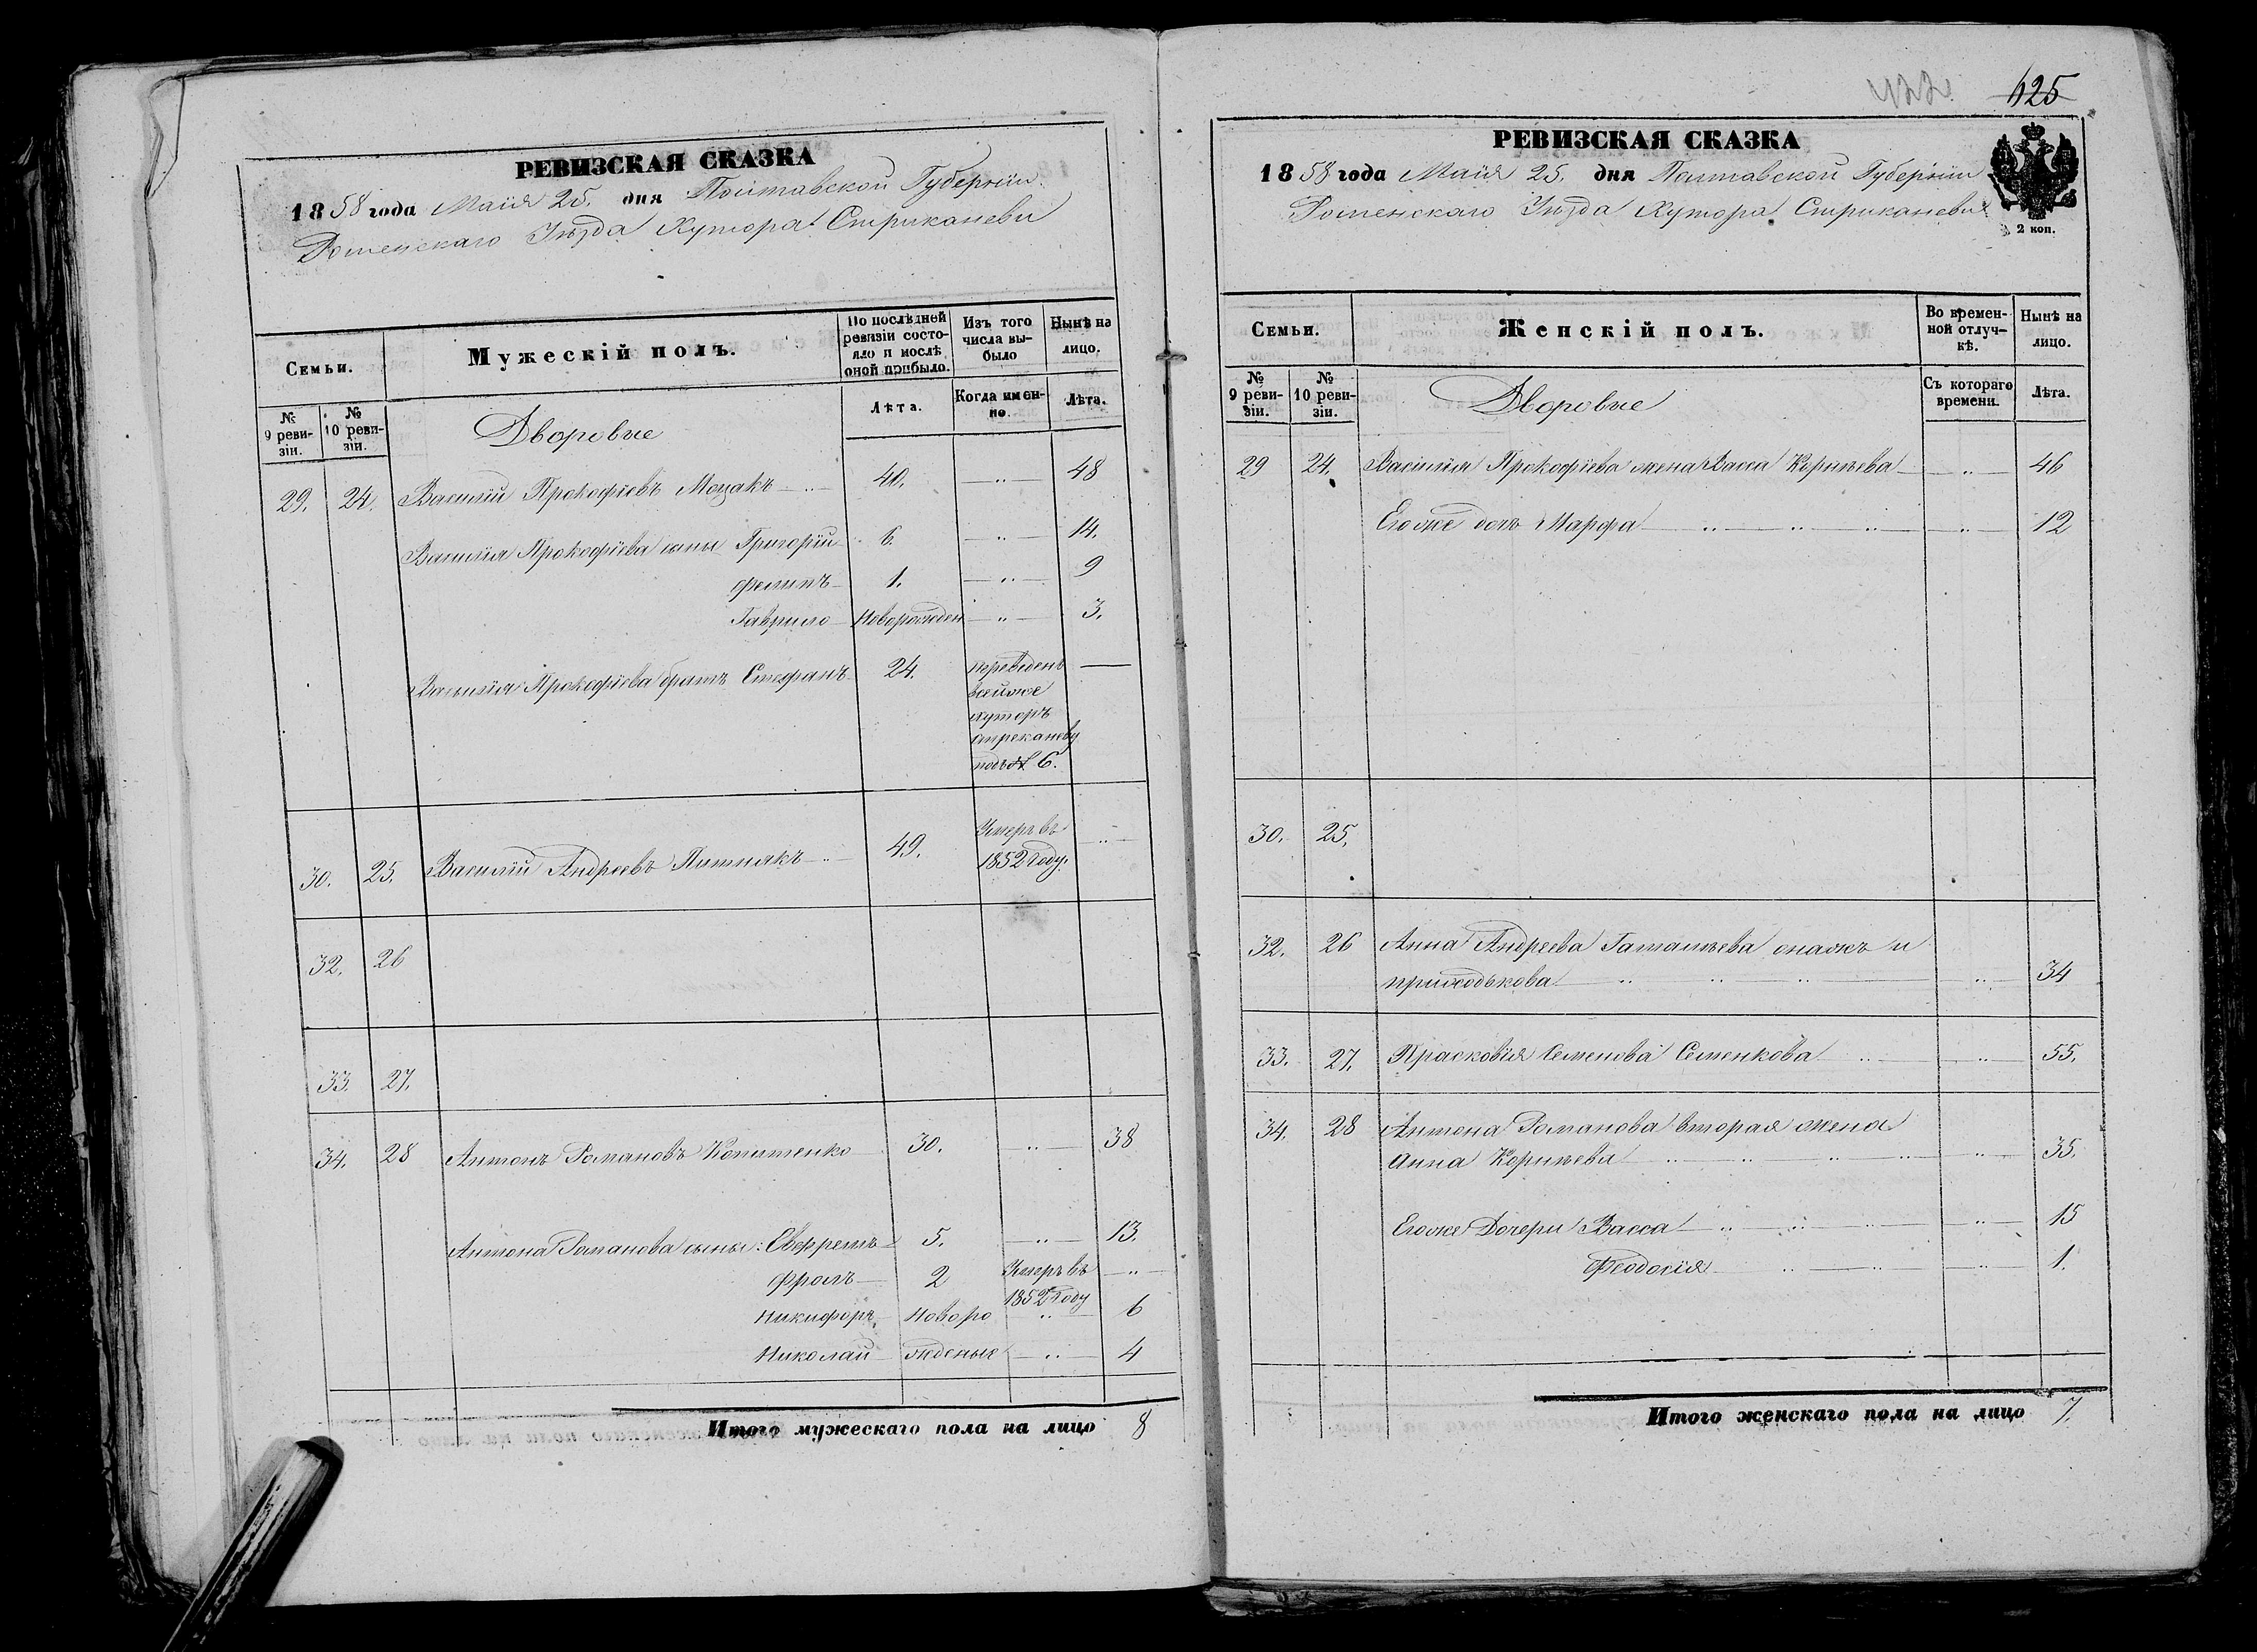 РЕВИЗСКАЯ СКАЗКА
1858 года Маія 25. дня Полтавской Губерніи
Роменскаго Уѣзда Хутора Стрикановки
Семьи.
Мужескій полъ.
По послѣдней ревизіи состояло и послѣ оной прибыло.
Изъ того числа выбыло
Нынѣ на лицо.
№ 9 ревизіи.
№ 10 ревизіи.
Дворовые
Лѣта.
Когда именно.
Лѣта.
29. 24. Василій Прокофіевъ Моцакъ 40. 48
Василія Прокофіева сыны Григорій 6. 14.
Филипъ 1. 9
Гаврило Новорожден 3.
Василія Прокофіева братъ Стефанъ 24. переведенъ
всейже
хуторъ
подъ № 6.
30. 25. Василій Андреевъ 49. Умеръ въ
1852 году.
32. 26
33. 27.
34. 28 Антонъ Романовъ Копитенко 30. 38
Антона Романова сыны: 5. 13.
Фролъ 2 Умеръ въ
1852 году
Никифоръ Новоро 6
Николай жденые 4
Итого мужескаго пола на лицо 8
625
РЕВИЗСКАЯ СКАЗКА
1858 года Маія 25. дня Полтавской Губерніи
Роменскаго Уѣзда Хутора Стрикановки
2 коп.
Семьи.
Женскій полъ.
Во временной отлучкѣ.
Нынѣ на лицо.
№ 9 ревизіи.
№ 10 ревизіи.
Дворовые
Съ котораго времени.
Лѣта.
29 24. Василія Прокофіева жена Васса Корнѣева 46
Егоже дочь Марфа 12
30. 25.
32. 26 Анна Андреева онажъ и
приходькова 34
33. 27. Прасковія Семенова Семенкова 55.
34. 28 Антона Романова вторая жена
Анна Корнѣева 35.
Егоже Дочери Васса 15
Феодосія 1.
Итого женскаго пола на лицо 7.